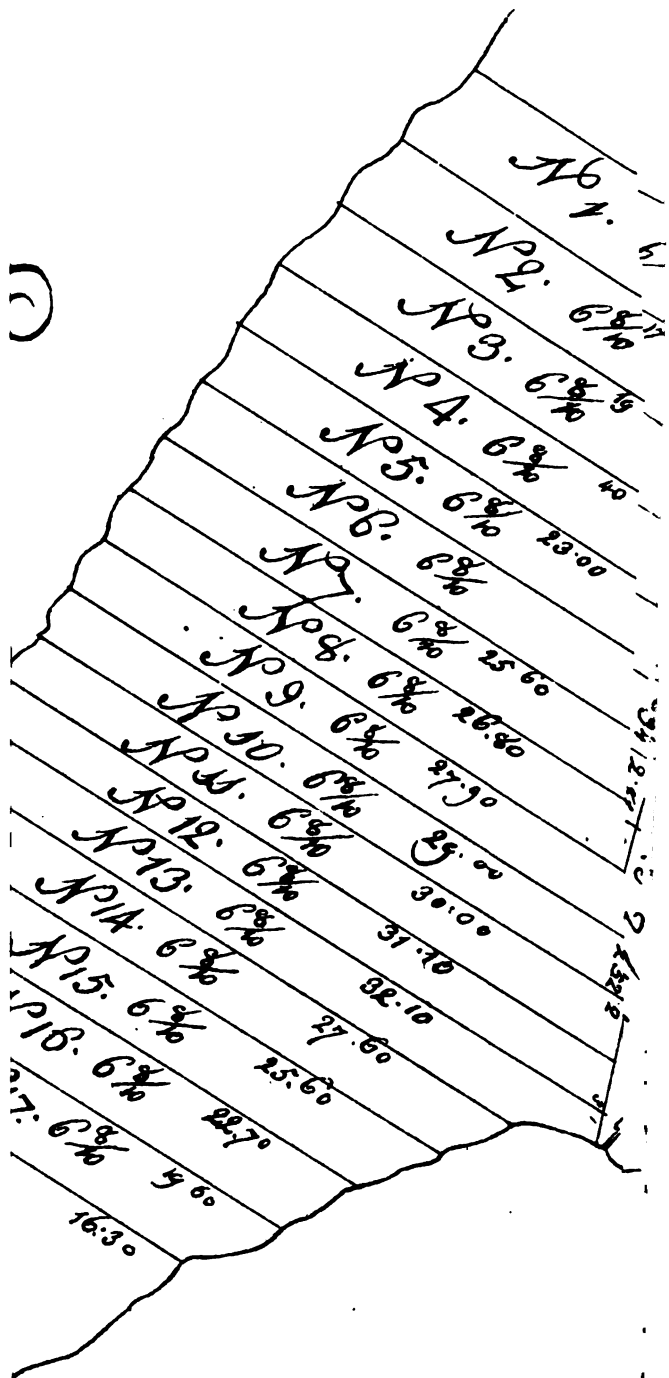 No 1.
No 2. 6 8/10 17
No 3. 6 8/10 19
No 4. 6 8/10 40
No 5. 6 8/10 23.00
No 6. 6 8/10
No 7. 6 8/10 25.60
No 8. 6 8/10 26.80
No 9. 6 8/10 27.90
No 10. 6 8/10 29.00
No 11. 6 8/10 30.00
No 12. 6 8/10 31.10
No 13. 6 8/10 32.10
No 14. 6 8/10 27.60
No 15. 6 8/10 25.60
No 16. 6 8/10 22.70
7. 6 8/10 19.60
16.30